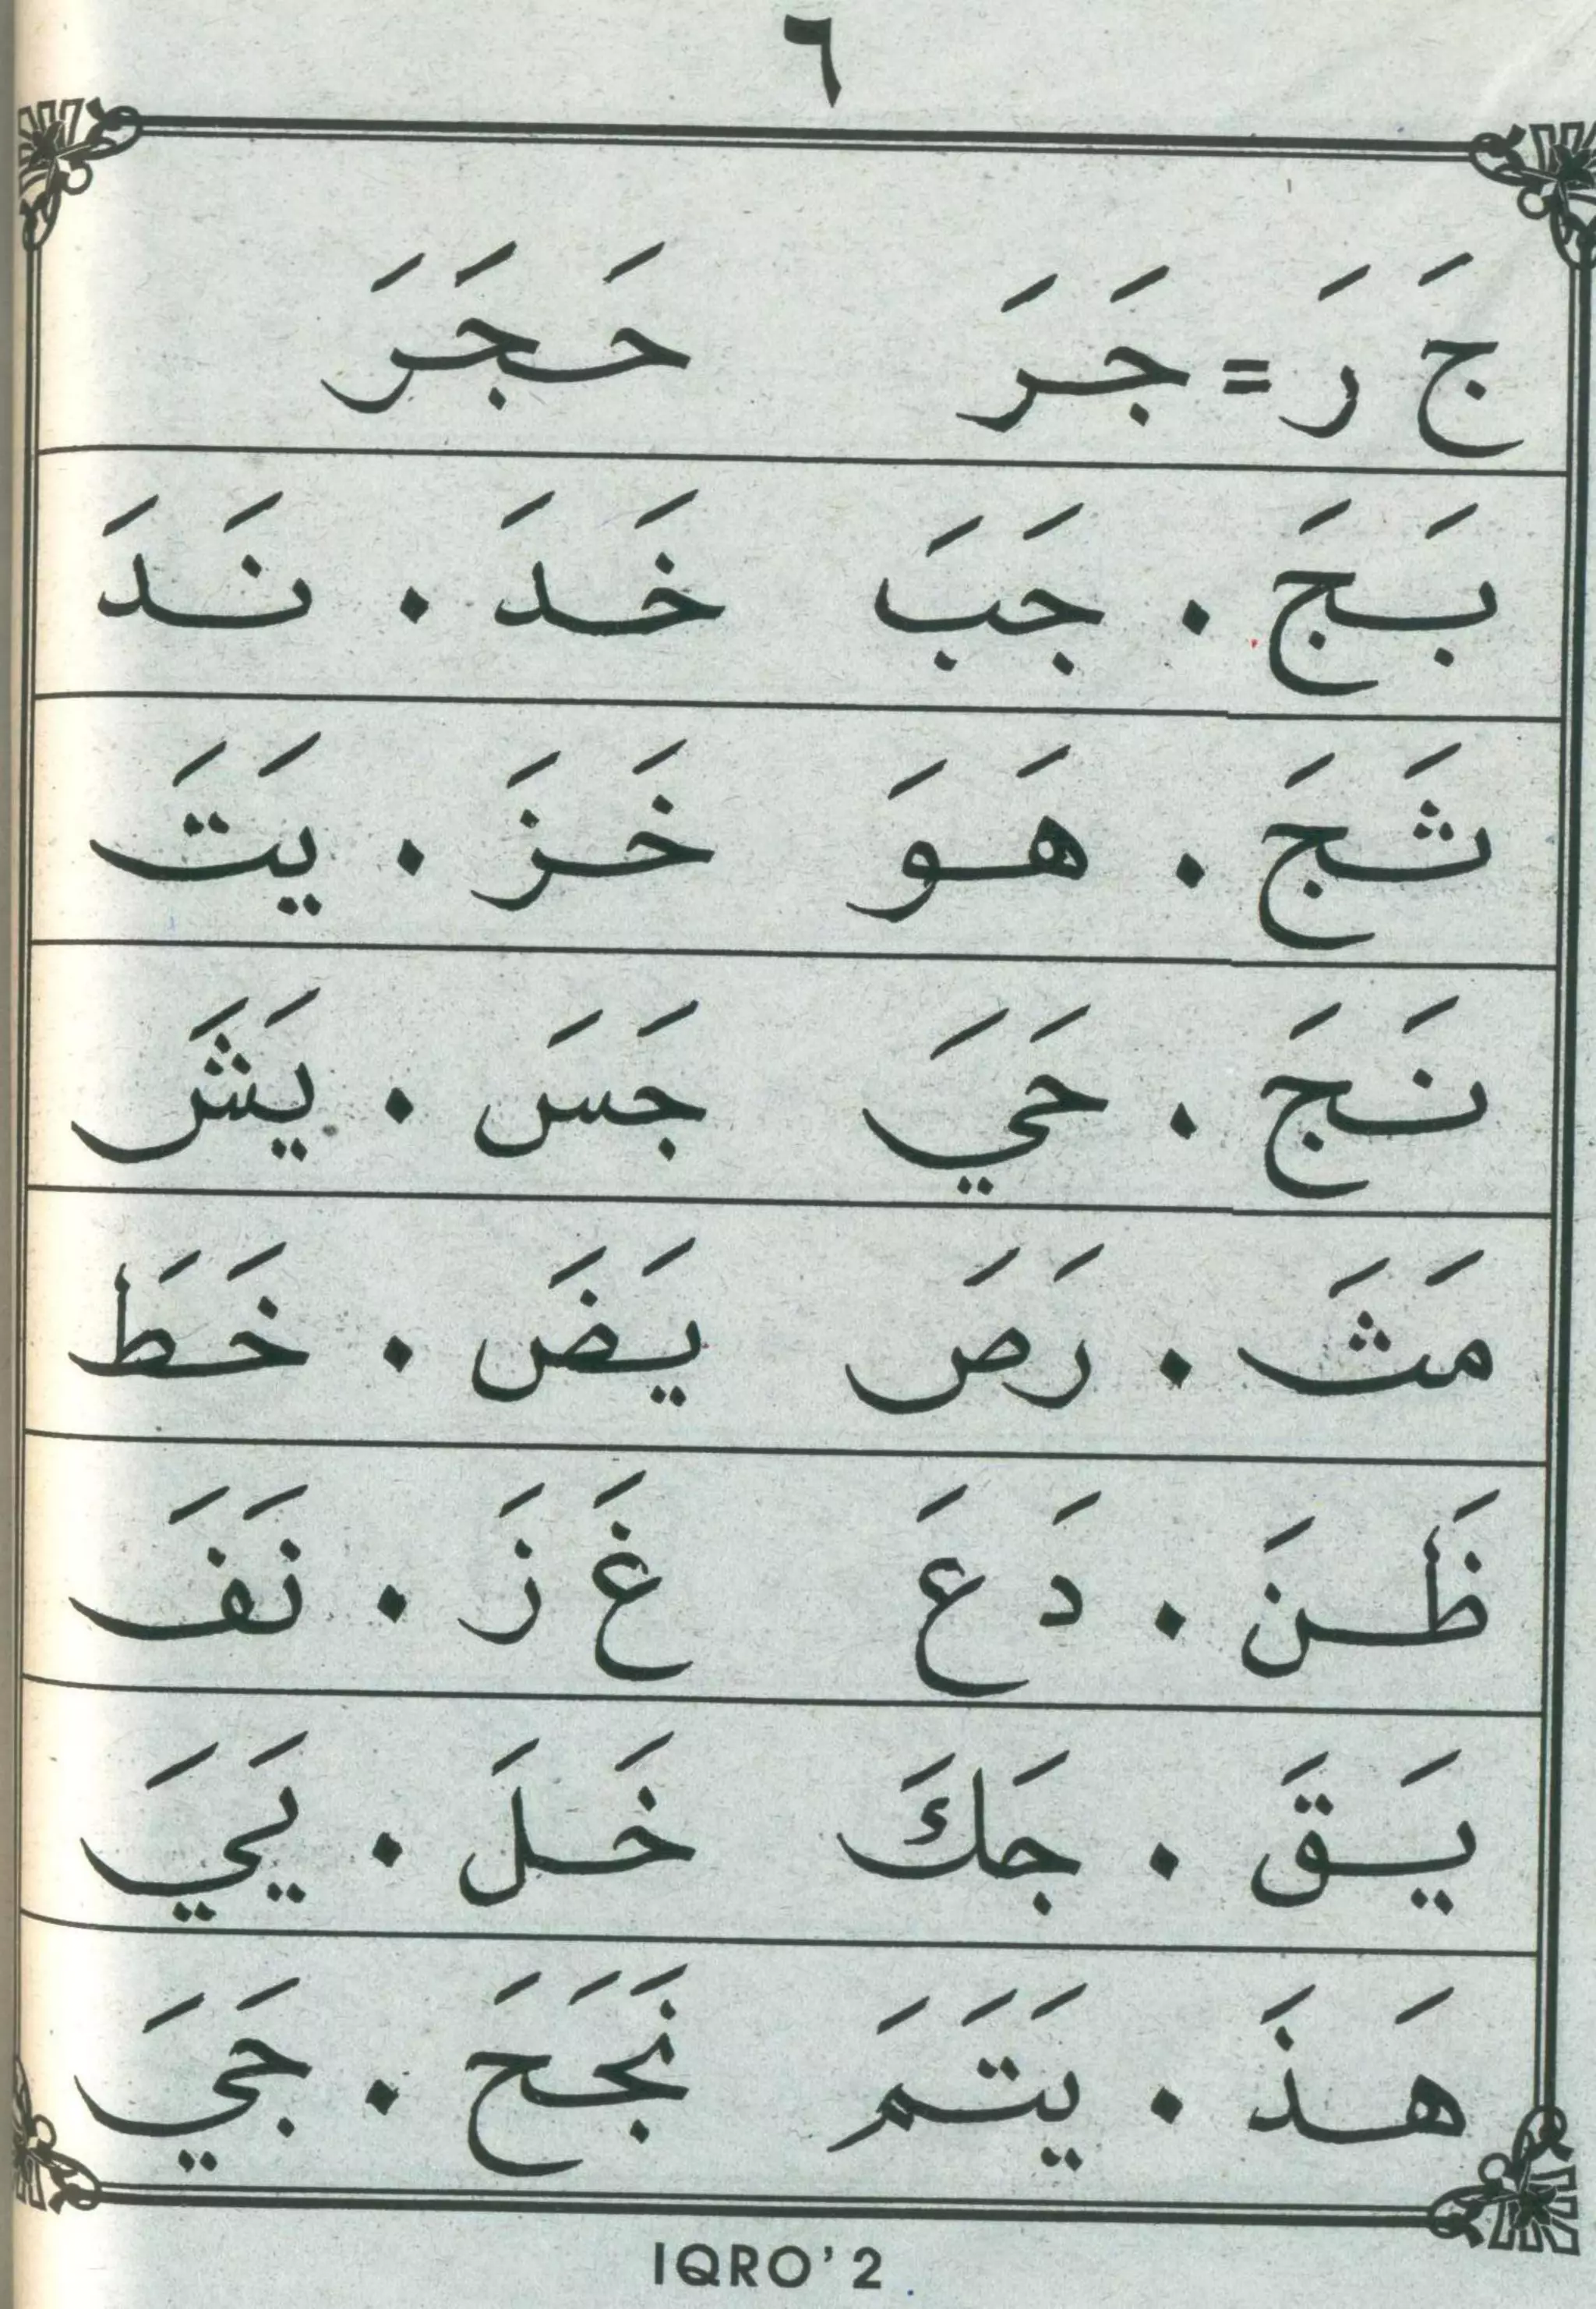 ٦
جَ رَ = جَرَ حَجَرَ
بَجَ . جَبَ خَدَ . نَدَ
ثَجَ . هَوَ خَزَ . يَتَ
نَجَ . حَيَ جَسَ . يَشَ
مَثَ . رَصَ يَضَ . خَطَ
ظَنَ . دَ عَ غَ زَ . نَفَ
يَقَ . جَكَ خَلَ . يَيَ
هَذَ . يَتَمَ نَجَحَ . جَيَ
IQRO' 2